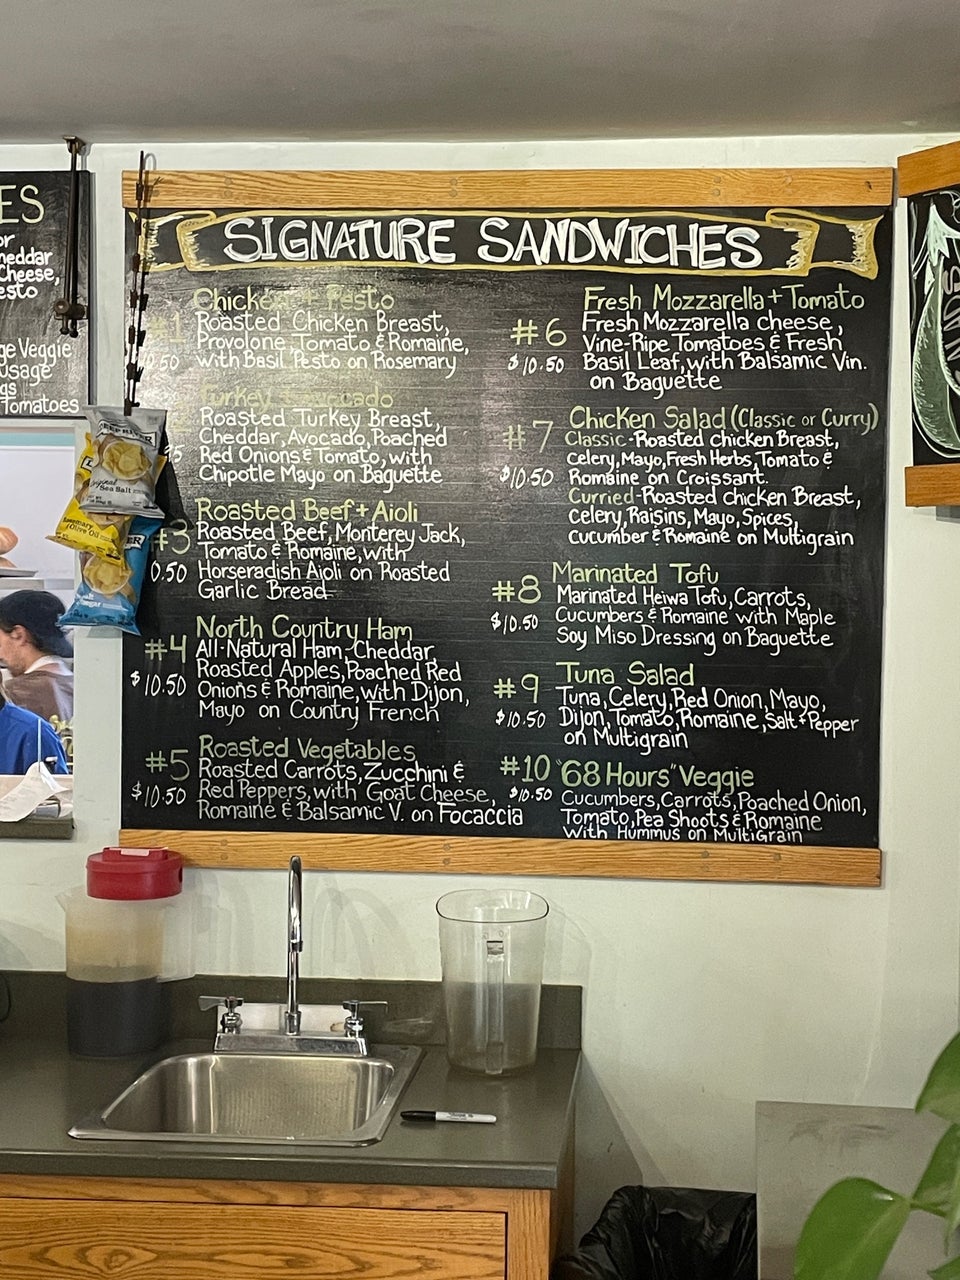 ES
or
heddar
Cheese,
esto
ge Veggie
usage
gs
Tomatoes
SIGNATURE SANDWICHES
Chicken + Pesto
#1 Roasted Chicken Breast,
Provolone, Tomato & Romaine,
.50 with Basil Pesto on Rosemary
Turkey Avocado
Roasted Turkey Breast,
Cheddar, Avocado, Poached
Red Onions & Tomato, with
Chipotle Mayo on Baguette
Roasted Beef + Aioli
#3 Roasted Beef, Monterey Jack,
Tomato & Romaine, with
0.50 Horseradish Aioli on Roasted
Garlic Bread
North Country Ham
#4 All-Natural Ham, Cheddar,
Roasted Apples, Poached Red
$10.50 Onions & Romaine, with Dijon,
Mayo on Country French
#5 Roasted Vegetables
Roasted Carrots, Zucchini &
$10.50 Red Peppers, with Goat Cheese,
Romaine & Balsamic V. on Focaccia
Fresh Mozzarella + Tomato
#6 Fresh Mozzarella cheese,
Vine-Ripe Tomatoes & Fresh
$10.50 Basil Leaf, with Balsamic Vin.
on Baguette
Chicken Salad (Classic or Curry)
#7 Classic-Roasted chicken Breast,
Celery, Mayo, Fresh Herbs, Tomato &
$10.50 Romaine on Croissant.
Curried-Roasted chicken Breast,
Celery, Raisins, Mayo, Spices,
cucumber & Romaine on Multigrain
Marinated Tofu
#8 Marinated Heiwa Tofu, Carrots,
$10.50 Cucumbers & Romaine with Maple
Soy Miso Dressing on Baguette
Tuna Salad
#9 Tuna, Celery, Red Onion, Mayo,
$10.50 Dijon, Tomato, Romaine, Salt + Pepper
on Multigrain
#10 "68 Hours" Veggie
$10.50 Cucumbers, Carrots, Poached Onion,
Tomato, Pea Shoots & Romaine
With Hummus on MultiGrain
DEEP RIVER
Original
Sea Salt
Rosemary
Olive Oil